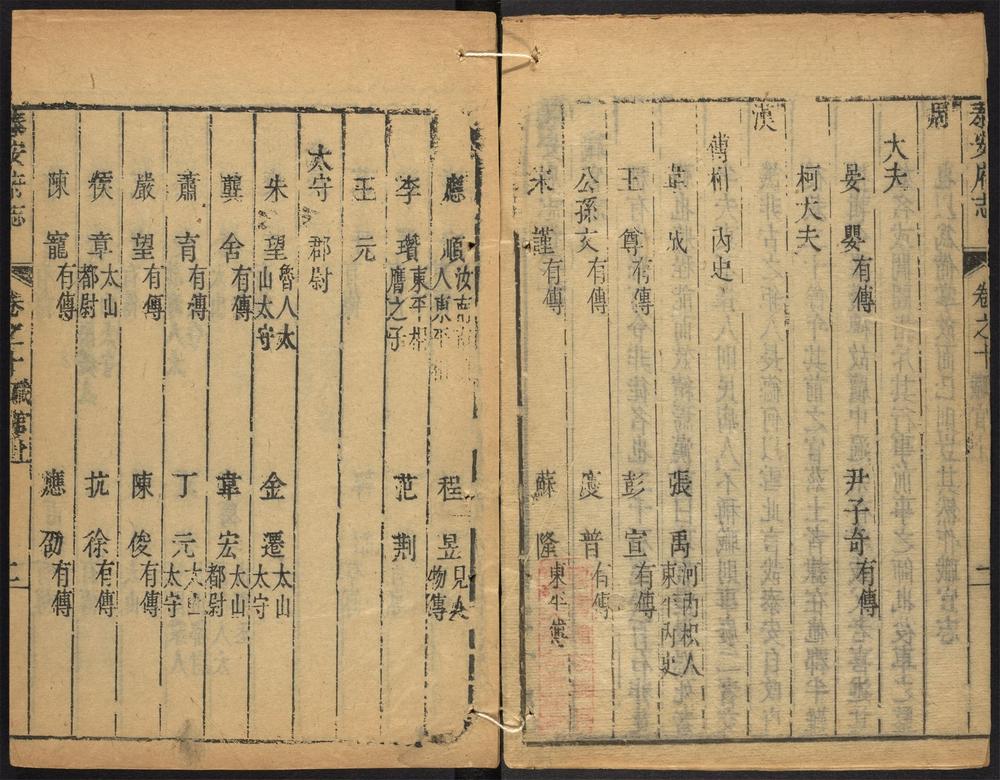 泰安府志 卷之十 職官 一
周
大夫
晏嬰 有傳 尹子奇 有傳
柯大夫
漢
傅相內史
韋成 張禹 河內枳人東平內史
王尊 有傳 彭宣 有傳
公孫文 有傳 慶普 有傳
宋謹 有傳 蘇隆 東平傅
應順 汝南人東平 程昱 見人物傳
李瓚 東平相膺之子 范荆
王元
太守 郡尉
朱望 魯人太山太守 金遷 太山太守
龔舍 有傳 韋宏 太山都尉
蕭育 有傳 丁元 太山太守
嚴望 有傳 陳俊 有傳
侯章 太山都尉 抗徐 有傳
陳寵 有傳 應劭 有傳
泰安府志 卷之十 職官上 二